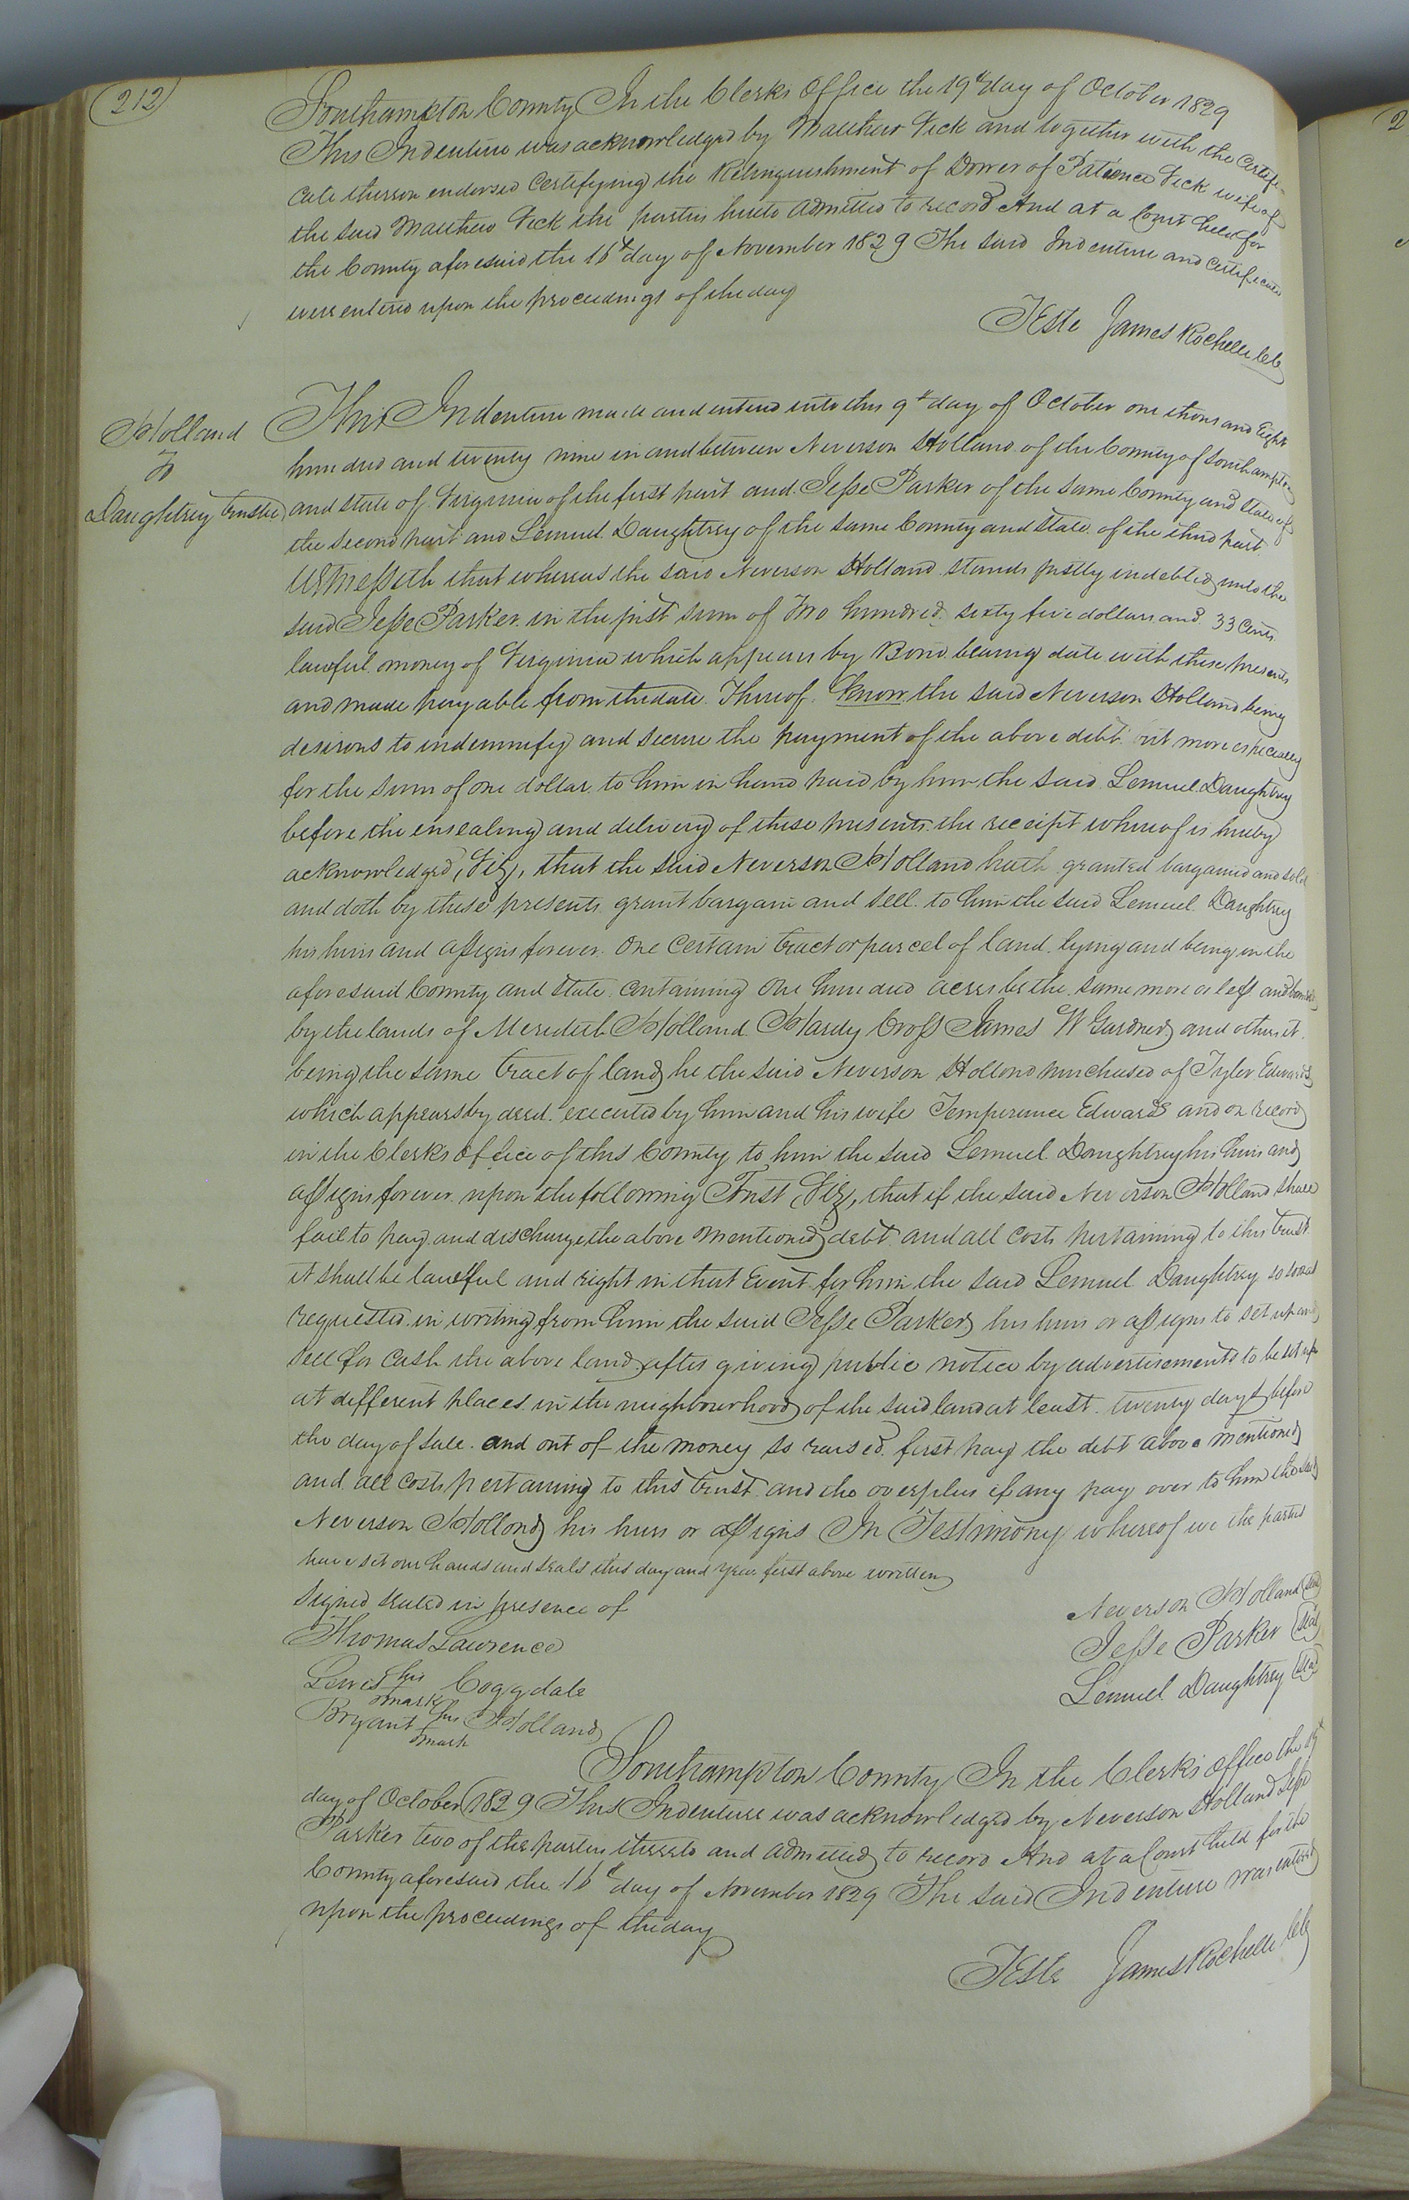 212
Southampton County In the Clerks Office the 19th day of October 1829
This Indenture was acknowledged by Matthew Vick and together with the Certifi-
cate thereon endorsed Certifying the Relinquishment of Dower of Patience Vick wife of
the said Matthew Vick the parties hereto admitted to record And at a Court held for
the County aforesaid the 16th day of November 1829 The said Indenture and Certificate
were entered upon the proceedings of the day
Teste James Rochelle Clk
Holland
To
Daughtrey trustee
This Indenture made and entered into this 9th day of October one thousand Eight
hundred and twenty nine in and between Neverson Holland of the County of Southampton
and state of Virginia of the first part and Jesse Parker of the same County and State of
the second part and Lemuel Daughtrey of the same County and state of the third part
Witnesseth that whereas the said Neverson Holland stands justly indebted unto the
said Jesse Parker in the just sum of Two hundred sixty five dollars and 33 Cents
lawful money of Virginia which appears by Bond bearing date with these presents
and made payable from the date Thereof. Know the said Neverson Holland being
desirous to indemnify and secure the payment of the above debt but more especially
for the sum of one dollar to him in hand paid by him the said Lemuel Daughtrey
before the ensealing and delivery of these presents the receipt whereof is hereby
acknowledged, Viz, that the said Neverson Holland hath granted bargained and sold
and doth by these presents grant bargain and sell to him the said Lemuel Daughtrey
his heirs and assigns forever One Certain tract or parcel of land lying and being in the
aforesaid County and state containing One hundred acres be the same more or less and bounded
by the lands of Meredith Holland Hardy Cross James W Gardner and others it
being the same tract of land he the said Neverson Holland purchased of Tyler Edwards
which appears by deed executed by him and his wife Temperance Edwards and on record
in the Clerks Office of this County to him the said Lemuel Daughtrey his heirs and
assigns forever upon the following Trust, Viz, that if the said Neverson Holland shall
fail to pay and discharge the above mentioned debt and all costs pertaining to this trust
it shall be lawful and right in that Event for him the said Lemuel Daughtrey so soon as
requested in writing from him the said Jesse Parker his heirs or assigns to set up and
sell for cash the above land after giving public notice by advertisements to be set up
at different places in the neighbourhood of the said land at least twenty days before
the day of sale and out of the money so raised first pay the debt above mentioned
and all costs pertaining to this trust and the overplus if any pay over to him the said
Neverson Holland his heirs or assigns In Testimony whereof we the parties
have set our hands and seals this day and year first above written
signed sealed in presence of
Neverson Holland Seal
Thomas Lawrence
Jesse Parker Seal
Lewis his mark Coggdale
Lemuel Daughtrey Seal
Bryant his mark Holland
Southampton County In the Clerks Office the 19th
day of October 1829 This Indenture was acknowledged by Neverson Holland Jesse
Parker two of the parties thereto and admitted to record And at a Court held for the
County aforesaid the 16th day of November 1829 The said Indenture was entered
upon the proceedings of the day
Teste James Rochelle Clk